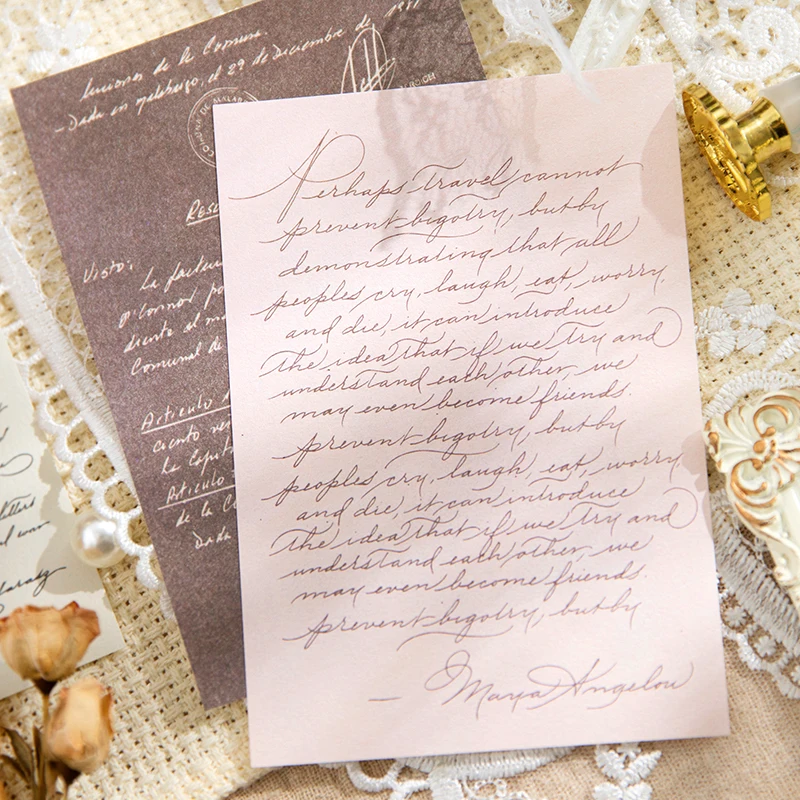 Luciones de la Comuna.
- Dada en Malabrigo, el 29 de Diciembre de 1981
COMUNA DE MALAB
Visto:
La factura
O'Connor po
diento el m
Comunal de
Artículo
ciento ven
La Capit
Artículo
de la Co
Dada
Perhaps travel cannot
prevent bigotry, but by
demonstrating that all
peoples cry, laugh, eat, worry,
and die, it can introduce
the idea that if we try and
understand each other, we
may even become friends.
prevent bigotry, but by
peoples cry, laugh, eat, worry,
and die, it can introduce
the idea that if we try and
understand each other, we
may even become friends.
prevent bigotry, but by
— Maya Angelou
letters